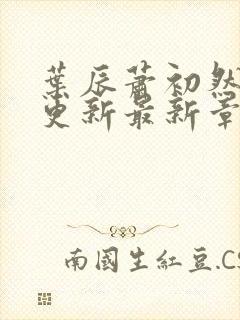 葉辰蕭初然
更新最新章
南國生紅豆.CS